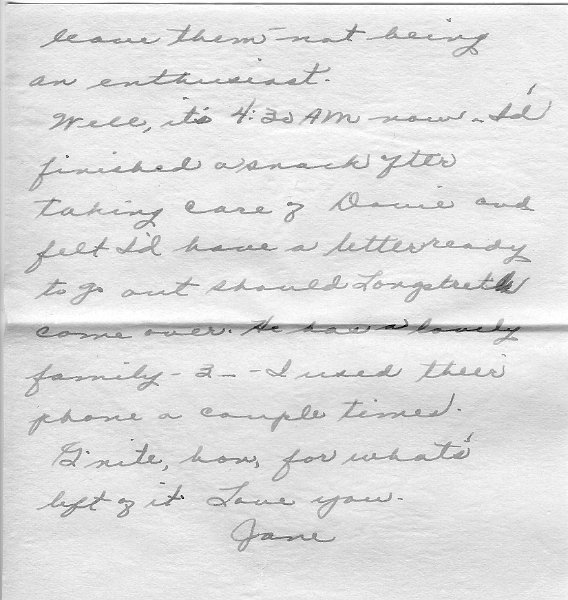 leave them - not being
an enthusiast.
Well, it's 4:30 AM now - I'd
finished a snack after
taking care of Davie and
felt I'd have a letter ready
to go out should Longstreth
come over. He has a lovely
family - 3 - - I used their
phone a couple times.
G'nite, hon, for what's
left of it. Love you.
Jane